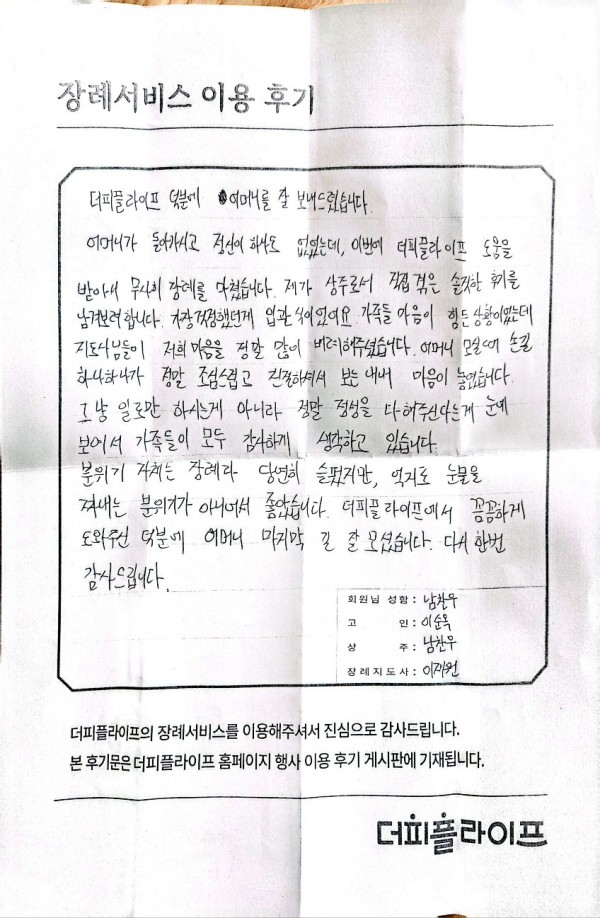 장례서비스 이용 후기
더피플라이프 덕분에 어머니를 잘 보내드렸습니다.
어머니가 돌아가시고 정신이 하나도 없었는데, 이번에 더피플라이프 도움을
받아서 무사히 장례를 마쳤습니다. 제가 상주로서 직접 겪은 솔직한 후기를
남겨보려 합니다. 가장 걱정했던게 입관식이었어요. 가족들 마음이 힘든 상황이었는데
지도사님들이 저희 마음을 정말 많이 배려해주셨습니다. 어머니 모실때 손길
하나하나가 정말 조심스럽고 친절하셔서 보는 내내 마음이 놓였습니다.
그냥 일로만 하시는게 아니라 정말 정성을 다해주신다는게 눈에
보여서 가족들이 모두 감사하게 생각하고 있습니다.
분위기 자체는 장례라 당연히 슬펐지만, 억지로 눈물을
짜내는 분위기가 아니어서 좋았습니다. 더피플라이프에서 꼼꼼하게
도와주신 덕분에 어머니 마지막 길 잘 모셨습니다. 다시 한번
감사드립니다.
회원님 성함 : 남찬우
고 인 : 이순옥
상 주 : 남찬우
장례지도사 : 이재원
더피플라이프의 장례서비스를 이용해주셔서 진심으로 감사드립니다.
본 후기문은 더피플라이프 홈페이지 행사 이용 후기 게시판에 기재됩니다.
더피플라이프